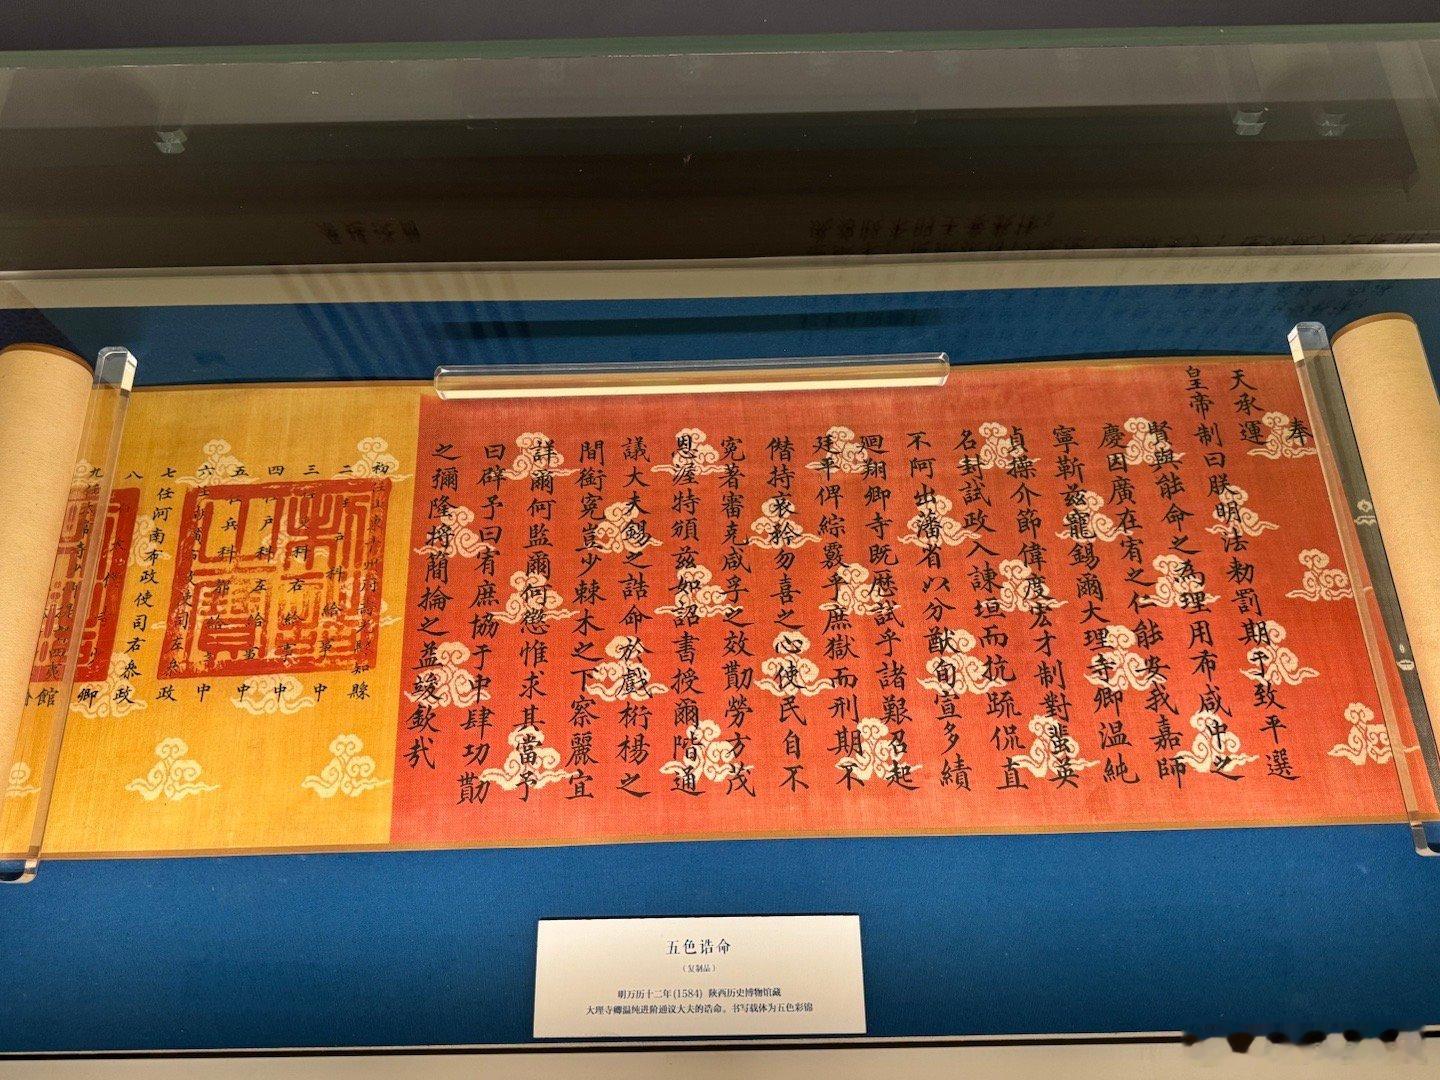 奉
天承運
皇帝制曰朕明法勑罰期于致平選
賢與能命之為理用布咸中之
慶因廣在宥之仁能安我嘉師
寧靳茲寵錫爾大理寺卿温純
貞操介節偉度宏才制對蜚英
名封試政入諫垣而抗疏侃直
不阿出藩省以分猷旬宣多績
迴翔卿寺既歷試乎諸艱召起
廷平俾綜覈乎庶獄而刑期不
僭持哀矜勿喜之心使民自不
冤著審克咸孚之效勤勞方茂
恩渥特頒茲如詔書授爾階通
議大夫錫之誥命於戲桁楊之
間銜冤豈少棘木之下察麗宜
詳爾何監爾何懲惟求其當予
曰辟予曰宥庶協于中肆功勤
之彌隆將簡掄之益竣欽哉
初任山東青州府壽光縣知縣
二任戶科給事中
三任兵科右給事中
四任戶科左給事中
五任兵科都給事中
六任湖廣布政使司左參政
七任河南布政使司右參政
八
九任太常寺少卿
館
五色诰命
（复制品）
明万历十二年(1584) 陕西历史博物馆藏
大理寺卿温纯进阶通议大夫的诰命。书写载体为五色彩锦